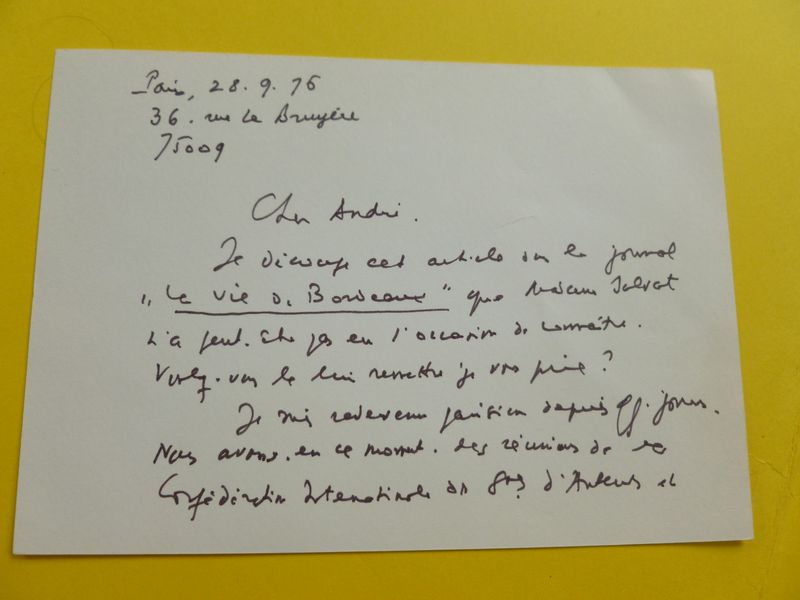 Paris, 28.9.76
36. rue La Bruyère
75009
Cher André.
Je découpe cet article sur le journal
"La Vie de Bordeaux" que Madame Salvat
n'a peut-être pas eu l'occasion de connaître.
Voulez-vous le lui remettre je vous prie?
Je suis redevenu parisien depuis qq. jours.
Nous avons, en ce moment, des réunions de la
Confédération Internationale des Stés d'Auteurs et